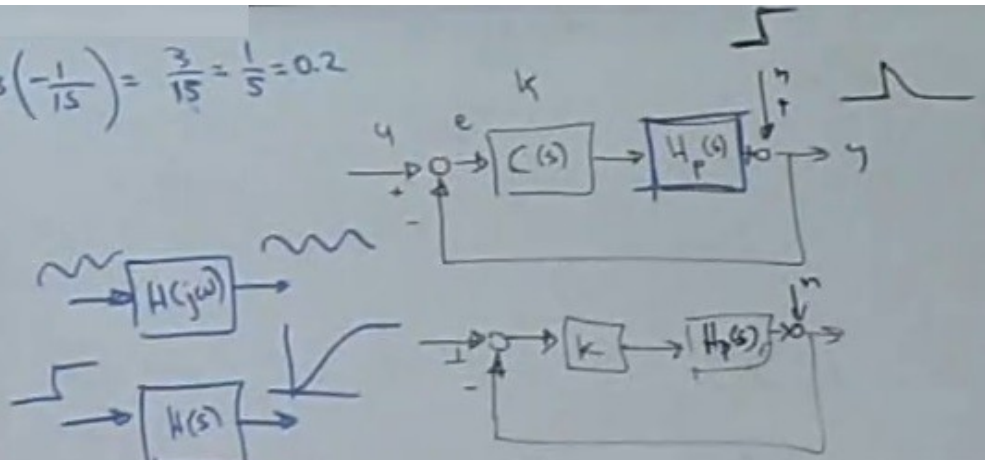 (-1/15) = 3/15 = 1/5 = 0.2
K
n
+
u
e
C(s)
Hp(s)
y
+
-
H(jω)
n
K
Hp(s)
-
H(s)